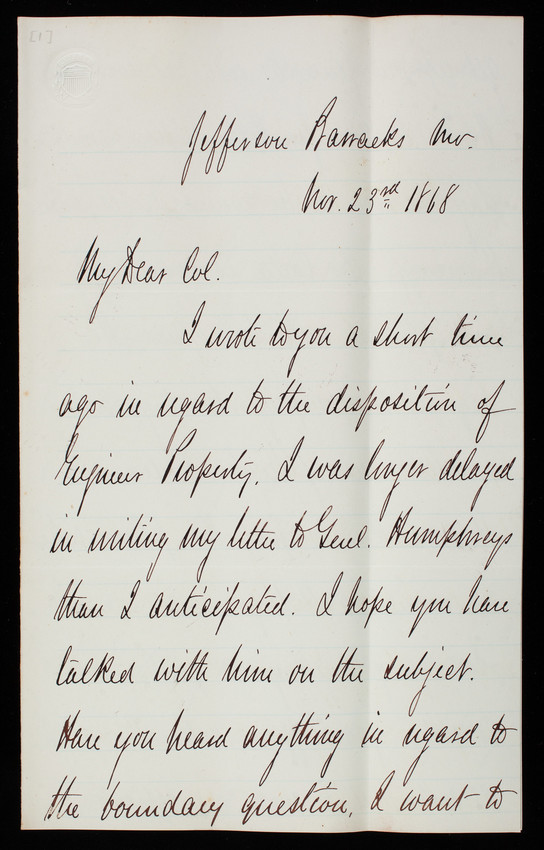 [1]
Jefferson Barracks Mo.
Nov. 23rd 1868
My Dear Col.
I wrote to you a short time
ago in regard to the disposition of
Engineer Property. I was longer delayed
in writing my letter to Genl. Humphreys
than I anticipated. I hope you have
talked with him on the subject.
Have you heard anything in regard to
the boundary question, I want to